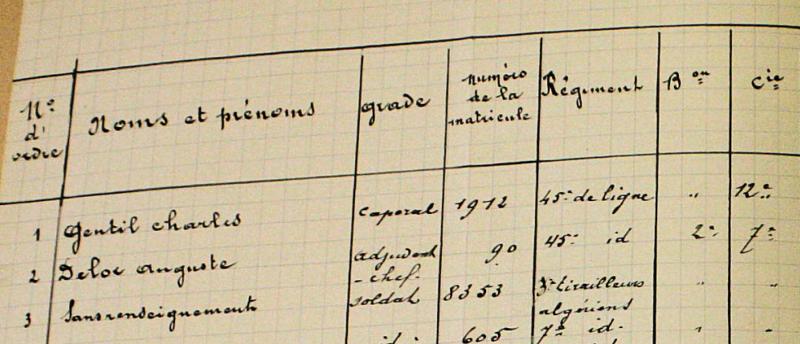 N° d'ordre Noms et prénoms grade numéro de la matricule Régiment Bon Cie
1 Gentil Charles caporal 1912 45e de ligne " 12e
2 Deloc Auguste adjudant-chef 90 45e id 2e 7e
3 Sans renseignement soldat 8353 3e tirailleurs algériens " "
id. 605 7e id. " "